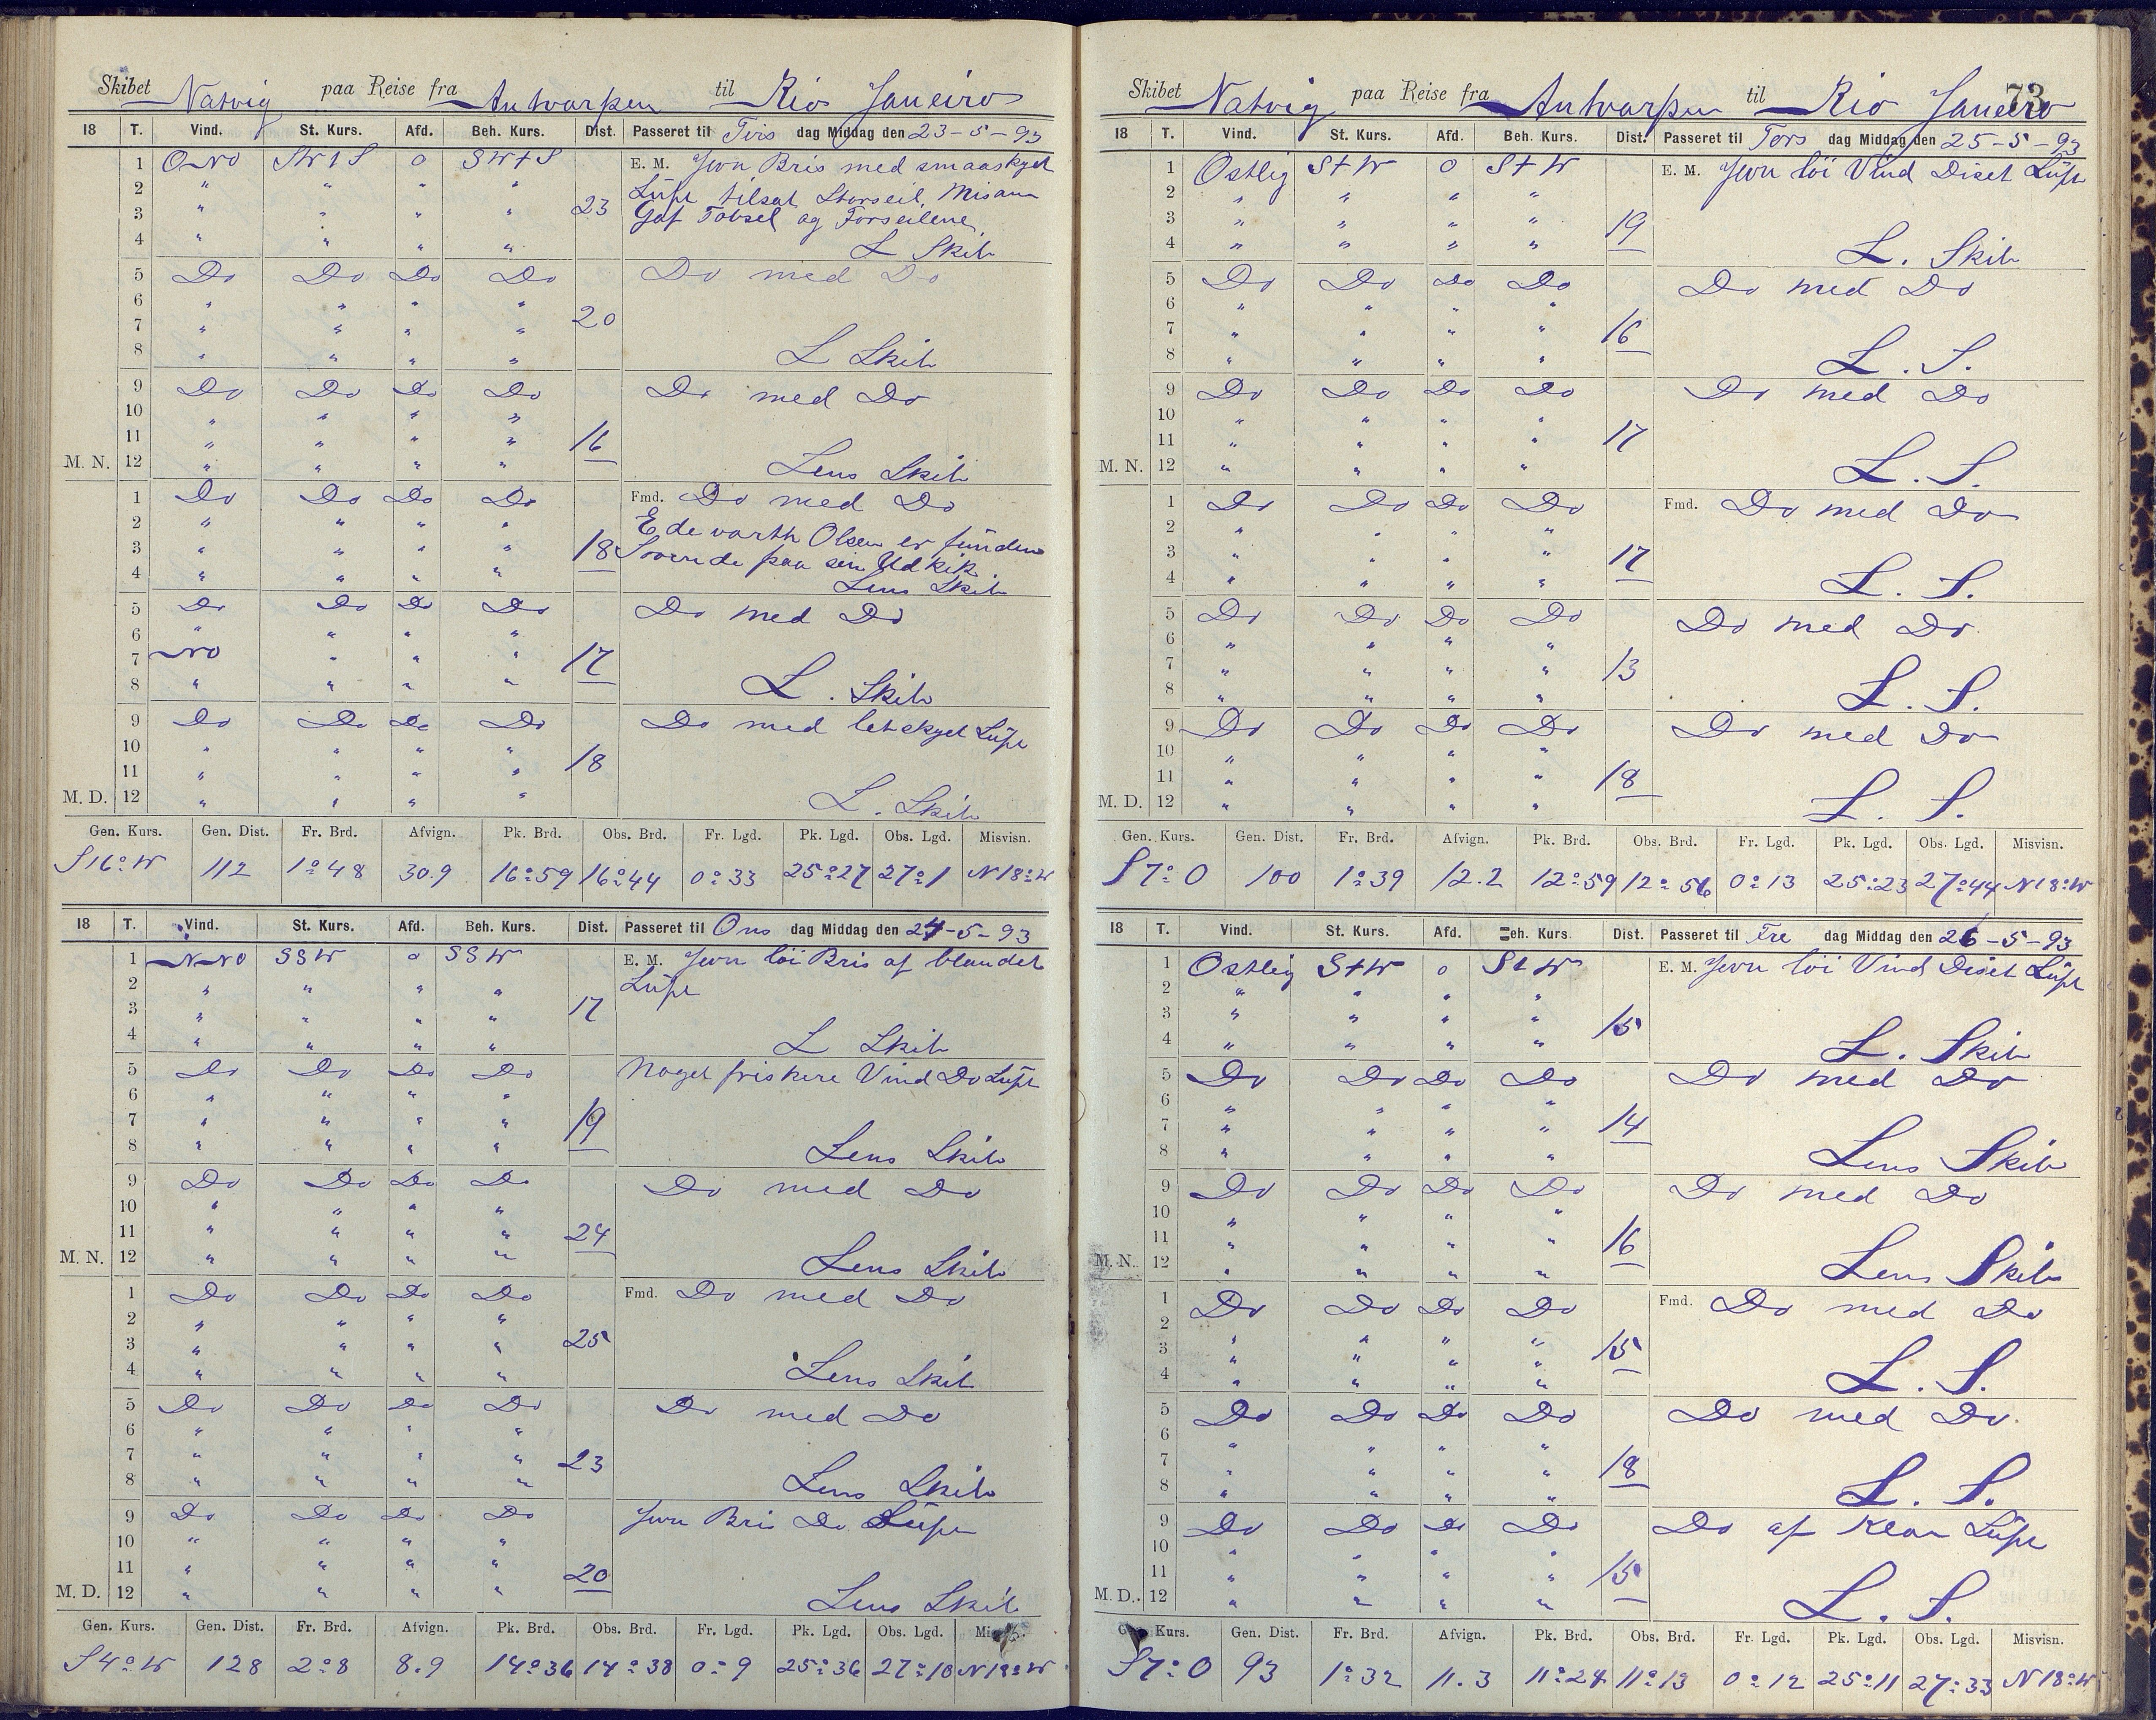 Skibet Natvig paa Reise fra Antwarpen til Rio Janeiro
18 T. Vind. St. Kurs. Afd. Beh. Kurs. Dist. Passeret til Tirs dag Middag den 23-5-93
1 ONO SWtS 0 SWtS E. M. Jevn Bris med smaaskyet
2 " " " " Luft tilsat Storseil, Misann
3 " " " " 23 Gaf Tobsel og Forseilene
4 " " " " L Skib
5 Do Do Do Do Do med Do
6 " " " "
7 " " " " 20
8 " " " " L Skib
9 Do Do Do Do Do med Do
10 " " " "
11 " " " " 16
M. N. 12 " " " " Lens Skib
1 Do Do Do Do Fmd. Do med Do
2 " " " " Edevarth Olsen er funden
3 " " " " 18 Sovende paa sin Udkik
4 " " " " Lens Skib
5 Do Do Do Do Do med Do
6 " " " "
7 NO " " " 17
8 " " " " L. Skib
9 Do Do Do Do Do med letskyet Luft
10 " " " "
11 " " " " 18
M. D. 12 " " " " L. Skib
Gen. Kurs. Gen. Dist. Fr. Brd. Afvign. Pk. Brd. Obs. Brd. Fr. Lgd. Pk. Lgd. Obs. Lgd. Misvisn.
S16°W 112 1°48 30.9 16°59 16°44 0°33 25°27 27°1 N18°W
18 T. Vind. St. Kurs. Afd. Beh. Kurs. Dist. Passeret til Ons dag Middag den 24-5-93
1 NNO SSW 0 SSW E. M. Jevn löi Bris af blandet
2 " " " " Luft
3 " " " " 17
4 " " " " L Skib
5 Do Do Do Do Noget friskere Vind Do Luft
6 " " " "
7 " " " " 19
8 " " " " Lens Skib
9 Do Do Do Do Do med Do
10 " " " "
11 " " " " 24
M. N. 12 " " " " Lens Skib
1 Do Do Do Do Fmd. Do med Do
2 " " " "
3 " " " " 25
4 " " " " Lens Skib
5 Do Do Do Do Do med Do
6 " " " "
7 " " " " 23
8 " " " " Lens Skib
9 Do Do Do Do Jevn Bris Do Luft
10 " " " "
11 " " " " 20
M. D. 12 " " " " Lens Skib
Gen. Kurs. Gen. Dist. Fr. Brd. Afvign. Pk. Brd. Obs. Brd. Fr. Lgd. Pk. Lgd. Obs. Lgd.
S4°W 128 2°8 8.9 14°36 14°38 0°9 25°36 27°10 N18°W
73
Skibet Natvig paa Reise fra Antwarpen til Rio Janeiro
18 T. Vind. St. Kurs. Afd. Beh. Kurs. Dist. Passeret til Tors dag Middag den 25-5-93
1 Ostlig StW 0 StW E. M. Jevn löi Vind Diset Luft
2 " " " "
3 " " " " 19
4 " " " " L. Skib
5 Do Do Do Do Do med Do
6 " " " "
7 " " " " 16
8 " " " " L. S.
9 Do Do Do Do Do med Do
10 " " " "
11 " " " " 17
M. N. 12 " " " L. S.
1 Do Do Do Do Fmd. Do med Do
2 " " " "
3 " " " " 17
4 " " " " L. S.
5 Do Do Do Do Do med Do
6 " " " "
7 " " " " 13
8 " " " " L. S.
9 Do Do Do Do Do med Do
10 " " " "
11 " " " " 18
M. D. 12 " " " " L. S.
Gen. Kurs. Gen. Dist. Fr. Brd. Afvign. Pk. Brd. Obs. Brd. Fr. Lgd. Pk. Lgd. Obs. Lgd. Misvisn.
S7°O 100 1°39 12.2 12°59 12°56 0°13 25°23 27°44 N18°W
18 T. Vind. St. Kurs. Afd. Beh. Kurs Dist. Passeret til Fre dag Middag den 26-5-93
1 Ostlig StW 0 StW E. M. Jevn löi Vind Diset Luft
2 " " " "
3 " " " " 15
4 " " " " L. Skib
5 Do Do Do Do Do med Do
6 " " " "
7 " " " " 14
8 " " " " Lens Skib
9 Do Do Do Do Do med Do
10 " " " "
11 " " " " 16
M. N. 12 " " " " Lens Skib
1 Do Do Do Do Fmd. Do med Do
2 " " " "
3 " " " " 15
4 " " " " L. S.
5 Do Do Do Do Do med Do.
6 " " " "
7 " " " " 18
8 " " " " L. S.
9 Do Do Do Do Do af Klar Luft
10 " " " "
11 " " " " 15
M. D. 12 " " " " L. S.
Kurs. Gen. Dist. Fr. Brd. Afvign. Pk. Brd. Obs. Brd. Fr. Lgd. Pk. Lgd. Obs. Lgd. Misvisn.
S7°O 93 1°32 11.3 11°24 11°13 0°12 25°11 27°33 N18°W